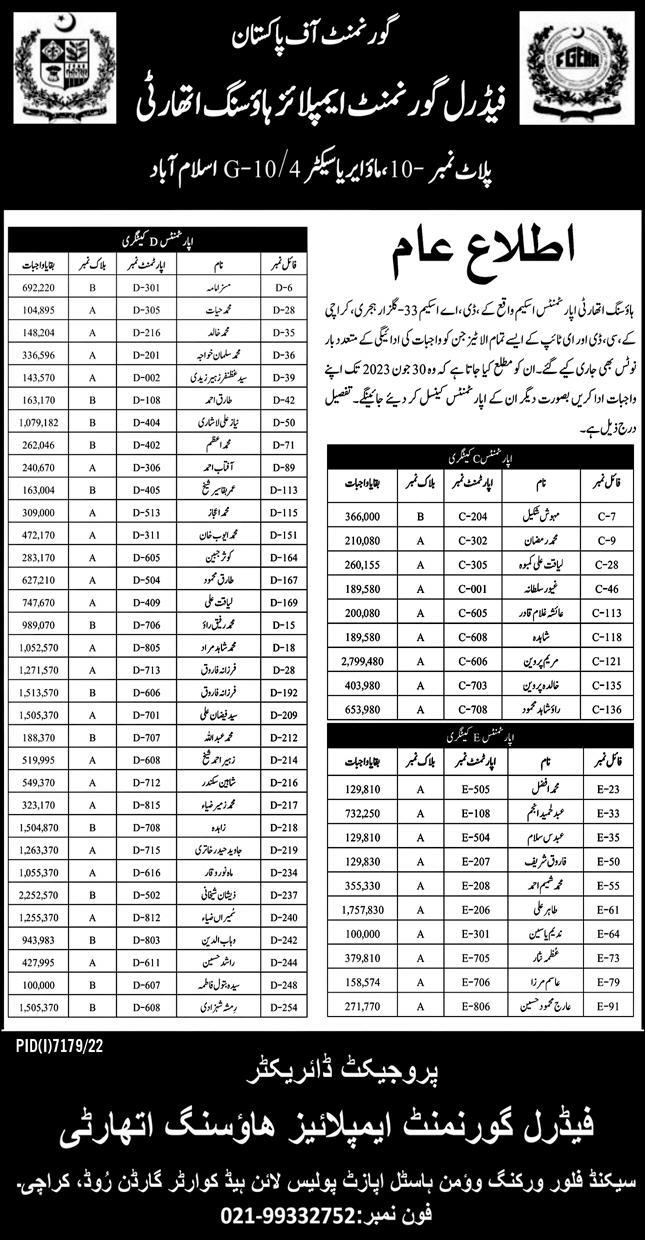 گورنمنٹ آف پاکستان
فیڈرل گورنمنٹ ایمپلائز ہاؤسنگ اتھارٹی
پلاٹ نمبر -10، ماؤ ایریا سیکٹر G-10/4 اسلام آباد
FGEHA
اطلاع عام
ہاؤسنگ اتھارٹی اپارٹمنٹس اسکیم واقع کے، ڈی، اے اسکیم 33-گلزار ہجری، کراچی
کے، سی، ڈی اور ای ٹائپ کے ایسے تمام الاٹیز جن کو واجبات کی ادائیگی کے متعدد بار
نوٹس بھی جاری کیے گئے۔ ان کو مطلع کیا جاتا ہے کہ وہ 30 جون 2023 تک اپنے
واجبات ادا کریں بصورت دیگر ان کے اپارٹمنٹس کینسل کر دیئے جائینگے۔ تفصیل
درج ذیل ہے۔
اپارٹمنٹس C کیٹگری
فائل نمبر نام اپارٹمنٹ نمبر بلاک نمبر بقایا واجبات
C-7 مہوش شکیل C-204 B 366,000
C-9 محمد رمضان C-302 A 210,080
C-28 لیاقت علی کمبوہ C-305 A 260,155
C-46 غیور سلطانہ C-001 A 189,580
C-113 عائشہ غلام قادر C-605 A 200,080
C-118 شاہدہ C-608 A 189,580
C-121 مریم پروین C-606 A 2,799,480
C-135 خالدہ پروین C-703 A 403,980
C-136 راؤ شاہد محمود C-708 A 653,980
اپارٹمنٹس E کیٹگری
فائل نمبر نام اپارٹمنٹ نمبر بلاک نمبر بقایا واجبات
E-23 محمد افضل E-505 A 129,810
E-33 عبدالحمید انجم E-108 A 732,250
E-35 عبدس سلام E-504 A 129,810
E-50 فاروق شریف E-207 A 129,830
E-55 محمد شمیم احمد E-208 A 355,330
E-61 طاہر علی E-206 A 1,757,830
E-64 ندیم یاسین E-301 A 100,000
E-73 عظمہ نثار E-705 A 379,810
E-79 عاسم مرزا E-706 A 158,574
E-91 عارج محمود حسین E-806 A 271,770
اپارٹمنٹس D کیٹگری
فائل نمبر نام اپارٹمنٹ نمبر بلاک نمبر بقایا واجبات
D-6 D-301 B 692,220
D-28 محمد حیات D-305 A 104,895
D-35 محمد خالد D-216 A 148,204
D-36 محمد سلمان خواجہ D-201 A 336,596
D-39 سید غظنفر زبیر زیدی D-002 A 143,570
D-42 طارق احمد D-108 B 163,170
D-50 نیاز علی لاشاری D-404 B 1,079,182
D-71 محمد اعظم D-402 B 262,046
D-89 آفتاب احمد D-306 A 240,670
D-113 شیخ D-405 B 163,004
D-115 محمد اعجاز D-513 A 309,000
D-151 محمد ایوب خان D-311 A 472,170
D-164 کوثر جبین D-605 A 283,170
D-167 طارق محمود D-504 A 627,210
D-169 لیاقت علی D-409 A 747,670
D-15 محمد رفیق راؤ D-706 B 989,070
D-18 محمد شاہد مراد D-805 A 1,052,570
D-28 فرزانہ فاروق D-713 A 1,271,570
D-192 فرزانہ فاروق D-606 B 1,513,570
D-209 سید فیضان علی D-701 A 1,505,370
D-212 محمد عبداللہ D-707 B 188,370
D-214 زہیر احمد شیخ D-608 A 519,995
D-216 شاہین سکندر D-712 A 549,370
D-217 محمد زمیر ضیاء D-815 A 323,170
D-218 زاہدہ D-708 B 1,504,870
D-219 جاوید حیدر خاتری D-715 A 1,263,370
D-234 ماہ نور وقار D-616 A 1,055,370
D-237 ذیشان شیخانی D-502 B 2,252,570
D-240 ضیاء D-812 A 1,255,370
D-242 وہاب الدین D-803 B 943,983
D-244 راشد حسین D-611 A 427,995
D-248 سیدہ بتول فاطمہ D-607 B 100,000
D-254 رمشہ شہزادی D-608 B 1,505,370
PID(I)7179/22
پروجیکٹ ڈائریکٹر
فیڈرل گورنمنٹ ایمپلائیز ھاؤسنگ اتھارٹی
سیکنڈ فلور ورکنگ وومن ہاسٹل اپازٹ پولیس لائن ہیڈ کوارٹر گارڈن رُوڈ، کراچی۔
فون نمبر:021-99332752